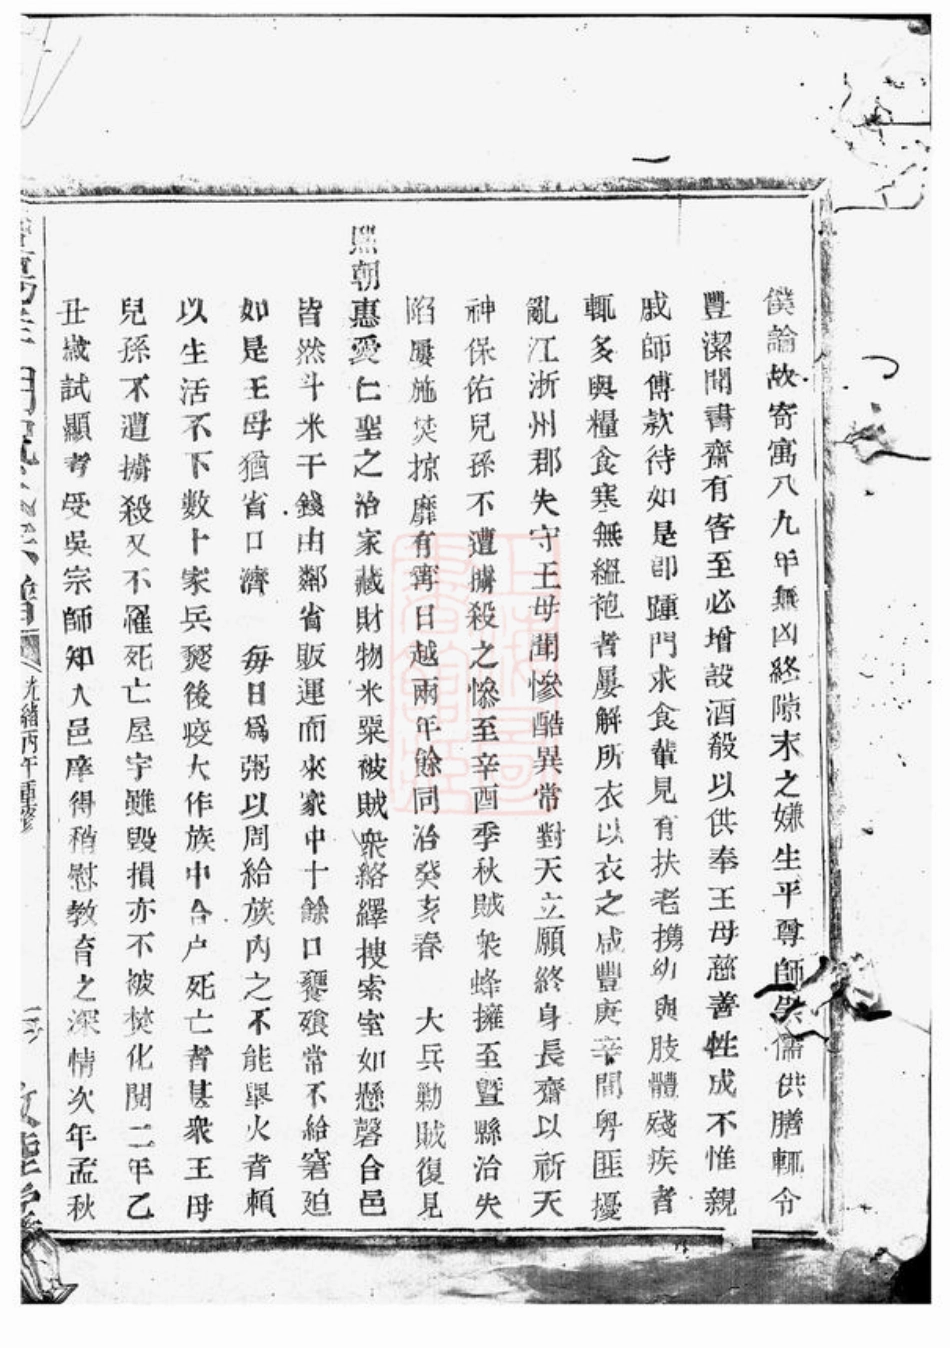 僕論故寄寓八九年無凶終隙末之嫌生平尊師崇儒供膳輒令
豐潔閒書齋有客至必增設酒殽以供奉王母慈善性成不惟親
戚師傅款待如是即踵門求食輩見有扶老攜幼與肢體殘疾者
輒多與糧食寒無縕袍者屢解所衣以衣之咸豐庚辛間粵匪擾
亂江浙州郡失守王母聞慘酷異常對天立願終身長齋以祈天
神保佑兒孫不遭擄殺之慘至辛酉季秋賊衆蜂擁至暨縣治失
陷屢施焚掠靡有寧日越兩年餘同治癸亥春 大兵勦賊復見
熙朝惠愛仁聖之治家藏財物米粟被賊衆絡繹搜索室如懸磬合邑
皆然斗米千錢由鄰省販運而來家中十餘口饔飧常不給窘廹
如是王母猶省口濟 每日爲粥以周給族內之不能舉火者賴
以生活不下數十家兵燹後疫大作族中合户死亡者甚衆王母
兒孫不遭擄殺又不罹死亡屋宇雖毀損亦不被焚化閱二年乙
丑歲試顯考受吳宗師知入邑庠得稍慰教育之深情次年孟秋
光緒丙午重修